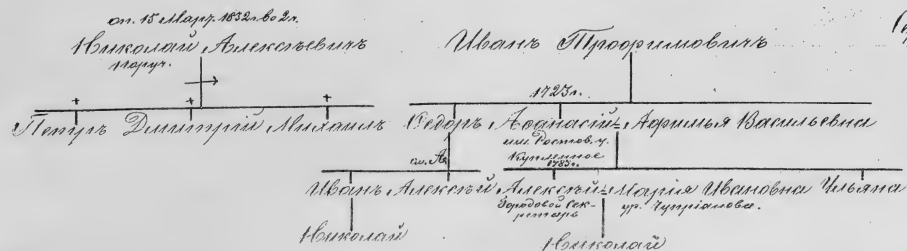 оп. 15 Март. 1832 г. во 2 г.
Николай Алексѣевичъ
Поруч.
Петръ Дмитрій Михаилъ
Иванъ Трофимовичъ
1723 г.
Ѳедоръ Аѳанасій Афимья Васильевна
им. Ростов. у.
Купленное
1783 г.
Иванъ Алексѣй Алексѣй Марія Ивановна Ульяна
Городовой Сек-
ретарь
ур. Чупріанова.
Николай
Николай